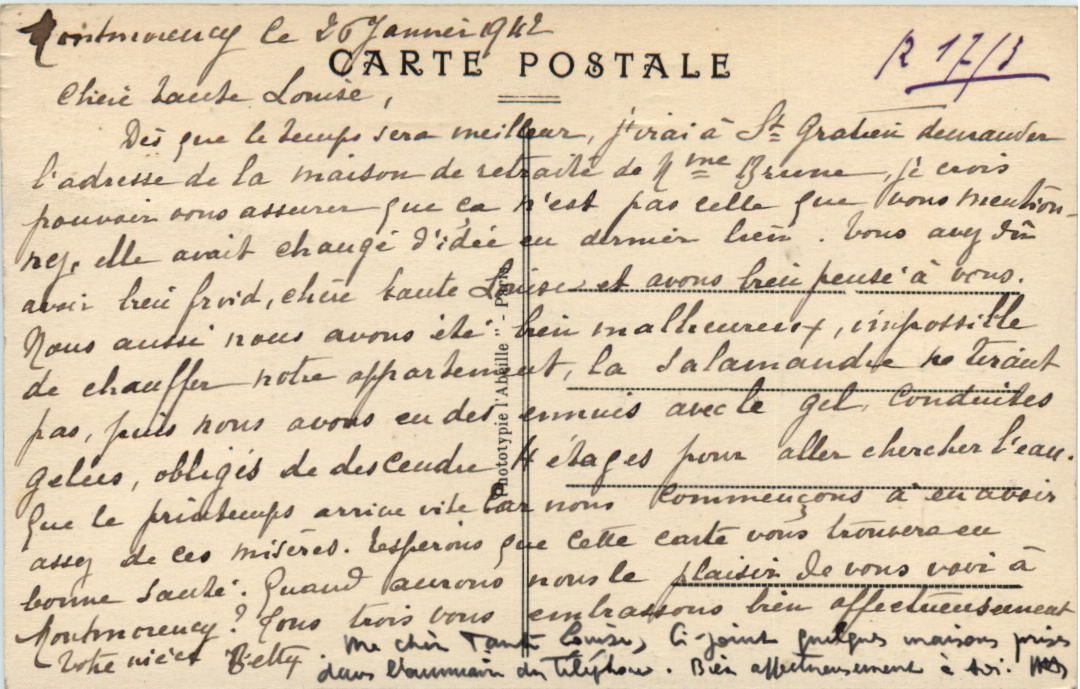 Montmorency le 26 Janvier 1942
CARTE POSTALE
R 17/3
Chère tante Louise,
Dès que le temps sera meilleur, j'irai à St Gratien demander
l'adresse de la maison de retraite de Mme Brune, je crois
pouvoir vous assurer que ça n'est pas celle que vous mention-
nez, elle avait changé d'idée en dernier lieu. Vous avez dû
avoir bien froid, chère tante Louise et avons bien pensé à vous.
Nous aussi nous avons été bien malheureux, impossible
de chauffer notre appartement, la salamandre ne tirant
pas, puis nous avons eu des ennuis avec le gel, conduites
gelées, obligés de descendre 4 étages pour aller chercher l'eau.
Que le printemps arrive vite car nous commençons à en avoir
assez de ces misères. Espérons que cette carte vous trouvera en
bonne santé. Quand aurons nous le plaisir de vous voir à
Montmorency? Tous trois vous embrassons bien affectueusement
Votre nièce Betty
Ma chère Tante Louise, Ci-joint quelques maisons prises
dans l'annuaire du téléphone. Bien affectueusement à toi.
Phototypie l'Abeille - Paris